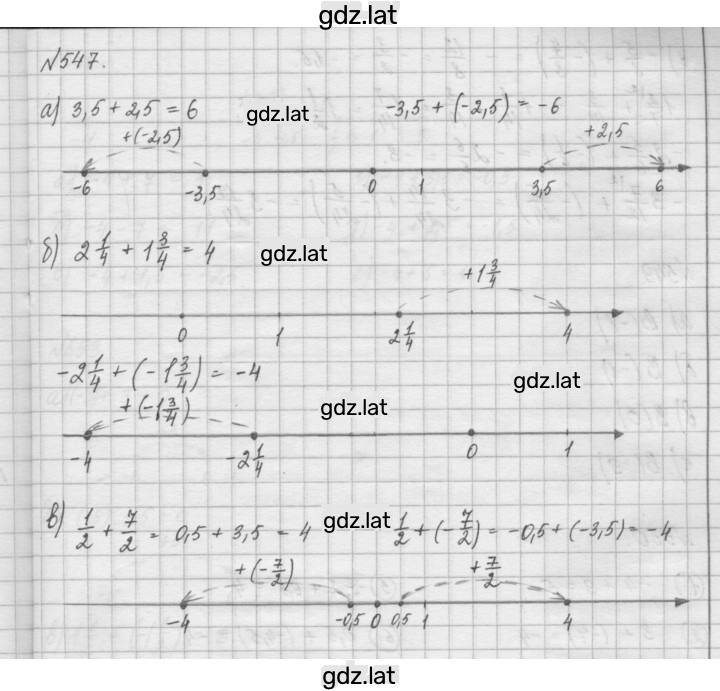 gdz.lat
№547.
а) 3,5 + 2,5 = 6 gdz.lat -3,5 + (-2,5) = -6
+(-2,5) +2,5
-6 -3,5 0 1 3,5 6
б) 2 1/4 + 1 3/4 = 4 gdz.lat
+1 3/4
0 1 2 1/4 4
-2 1/4 + (-1 3/4) = -4 gdz.lat
+(-1 3/4) gdz.lat
-4 -2 1/4 0 1
в) 1/2 + 7/2 = 0,5 + 3,5 = 4 gdz.lat 1/2 + (-7/2) = -0,5 + (-3,5) = -4
+(-7/2) +7/2
-4 -0,5 0 0,5 1 4
gdz.lat